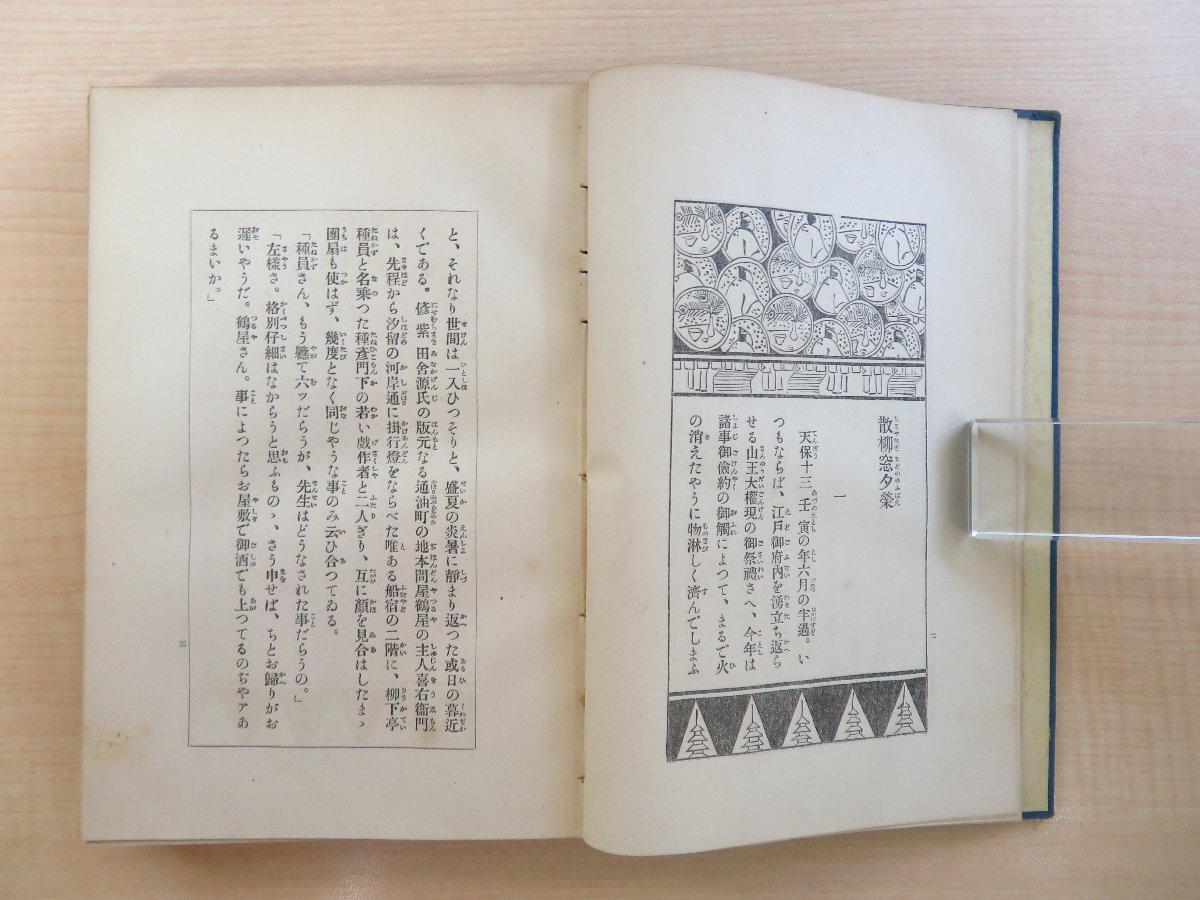 散柳窓夕榮
一
天保十三壬寅の年六月の半過。い
つもならば、江戸御府内を湧立ち返ら
せる山王大權現の御祭禮さへ、今年は
諸事御儉約の御觸によつて、まるで火
の消えたやうに物淋しく濟んでしまふ
と、それなり世間は一入ひつそりと、盛夏の炎暑に靜まり返つた或日の暮近
くである。偐紫田舍源氏の版元なる通油町の地本問屋鶴屋の主人喜右衞門
は、先程から汐留の河岸通に掛行燈をならべた唯ある船宿の二階に、柳下亭
種員と名乘つた種彥門下の若い戲作者と二人ぎり、互に顏を見合はしたまゝ
團扇も使はず、幾度となく同じやうな事のみ云ひ合つてゐる。
「種員さん、もう軈て六ツだらうが、先生はどうなされた事だらうの。」
「左樣さ。格別仔細はなからうと思ふものゝ、さう申せば、ちとお歸りがお
遲いやうだ。鶴屋さん。事によつたらお屋敷で御酒でも上つてるのぢやアあ
るまいか。」